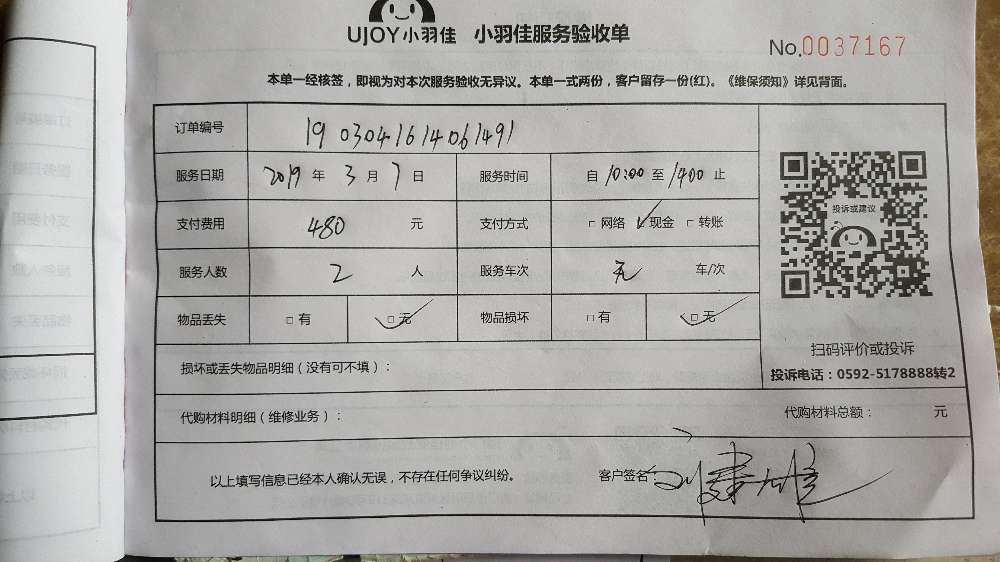 UJOY小羽佳 小羽佳服务验收单
No.0037167
本单一经核签，即视为对本次服务验收无异议。本单一式两份，客户留存一份(红)。《维保须知》详见背面。
订单编号 1903041614061491
服务日期 2019 年 3 月 7 日 服务时间 自 10:00 至 1400 止
支付费用 480 元 支付方式 □ 网络 ☑ 现金 □ 转账
投诉或建议
服务人数 2 人 服务车次 无 车/次
物品丢失 □ 有 ☑ 无 物品损坏 □ 有 ☑ 无
扫码评价或投诉
损坏或丢失物品明细（没有可不填）：
投诉电话：0592-5178888转2
代购材料明细（维修业务）： 代购材料总额： 元
以上填写信息已经本人确认无误，不存在任何争议纠纷。 客户签名：